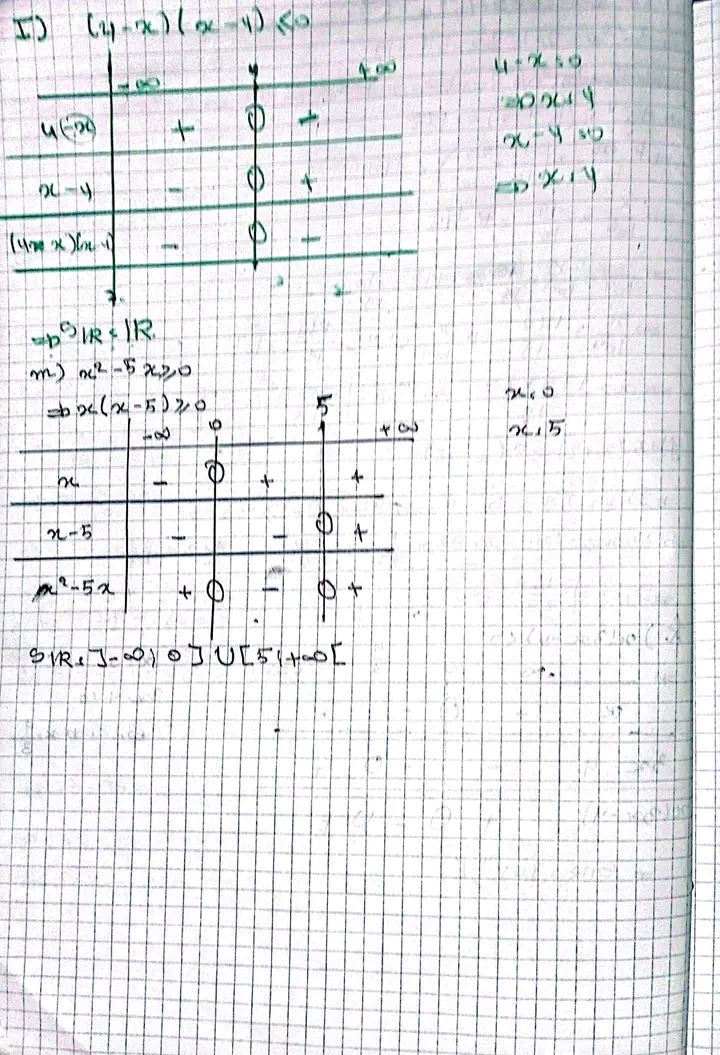 I) (4-x)(x-4) ≤0
4-x=0
=> x=4
x-4=0
=> x=4
-∞ 4 +∞
4(-x) + 0 -
x-4 - 0 +
- 0 -
=> SIR = IR
m) x²-5x≥0
=> x(x-5)≥0
x=0
x=5
-∞ 0 5 +∞
x - 0 + +
x-5 - - 0 +
x²-5x + 0 - 0 +
SIR = ]-∞; 0] U [5; +∞[